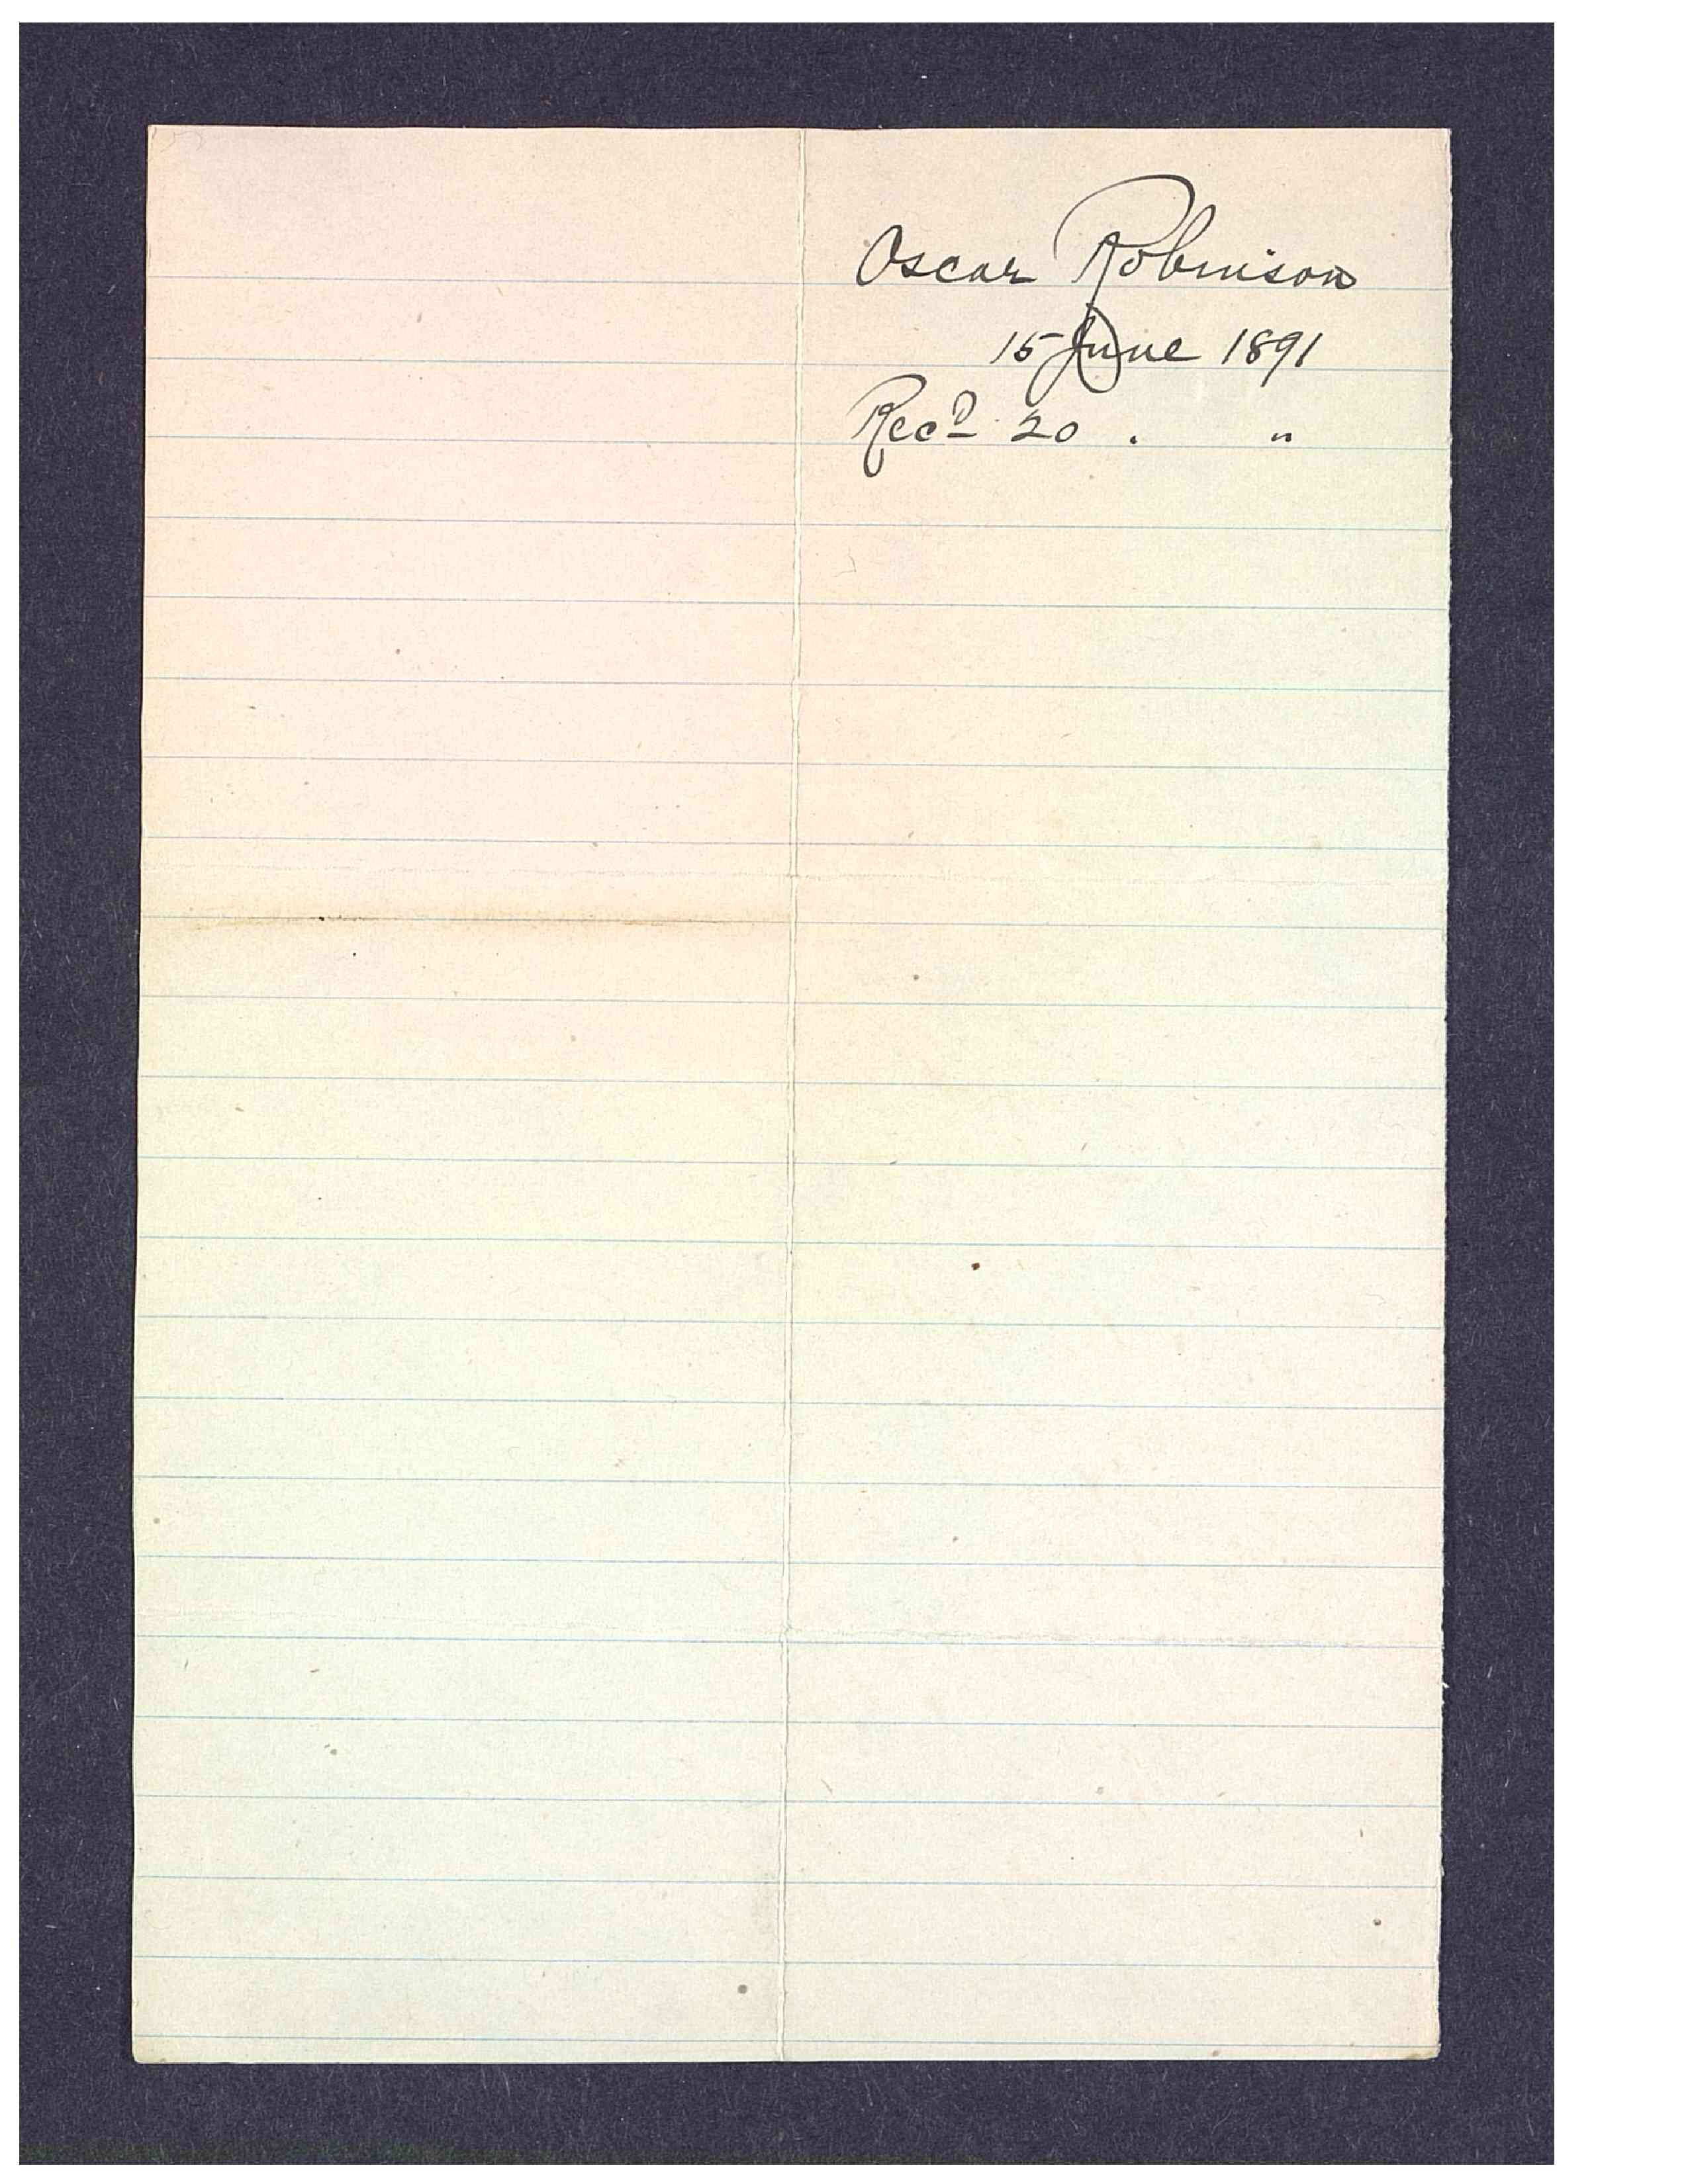 Oscar Robinson
15 June 1891
Recd 20 . "